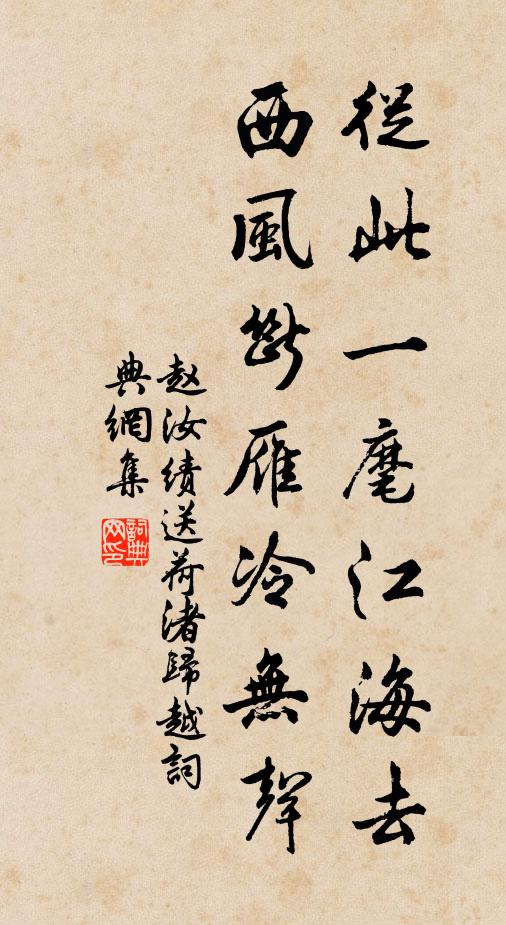 從此一麾江海去
西風斷雁冷無聲
赵汝績送荷渚歸越詞
典網集
詞典网印